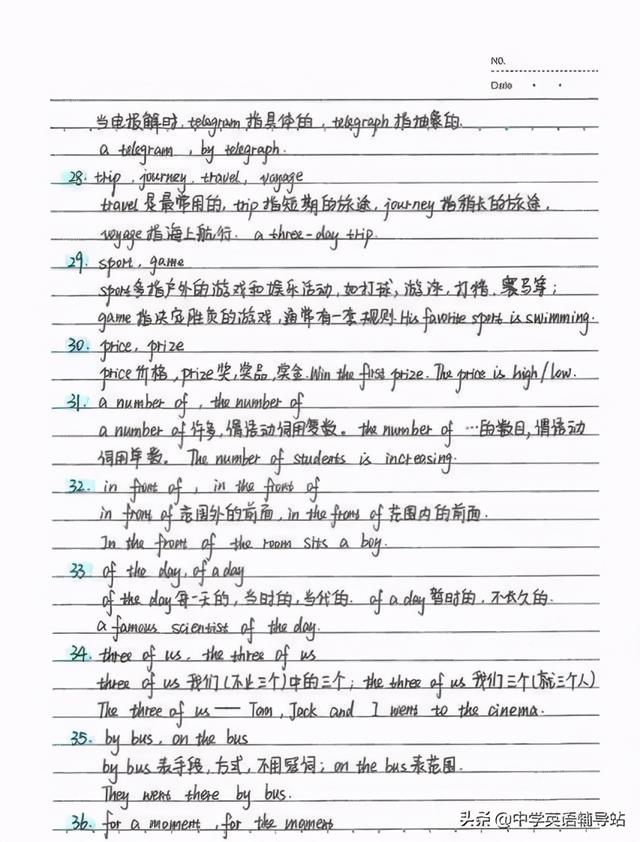 NO.
Date
当电报解时, telegram 指具体的, telegraph 指抽象的.
a telegram , by telegraph.
28. trip , journey, travel, voyage
travel 是最常用的, trip 指短期的旅途, journey 指稍长的旅途,
voyage 指海上航行. a three-day trip.
29. sport, game
sport多指户外的游戏和娱乐活动, 如打球, 游泳, 打猎, 赛马等;
game 指决定胜负的游戏, 通常有一套规则. His favorite sport is swimming.
30. price, prize
price 价格, prize 奖, 奖品, 奖金. Win the first prize. The price is high/low.
31. a number of , the number of
a number of 许多, 谓语动词用复数。 the number of …的数目, 谓语动
词用单数。 The number of students is increasing.
32. in front of , in the front of
in front of 范围外的前面, in the front of 范围内的前面.
In the front of the room sits a boy.
33. of the day, of a day
of the day 每一天的, 当时的, 当代的. of a day 暂时的, 不长久的.
a famous scientist of the day.
34. three of us, the three of us
three of us 我们(不止三个)中的三个; the three of us 我们三个(就三个人)
The three of us —— Tom, Jack and I went to the cinema.
35. by bus, on the bus
by bus 表手段, 方式, 不用冠词; on the bus 表范围.
They went there by bus.
36. for a moment , for the moment
头条 @中学英语辅导站